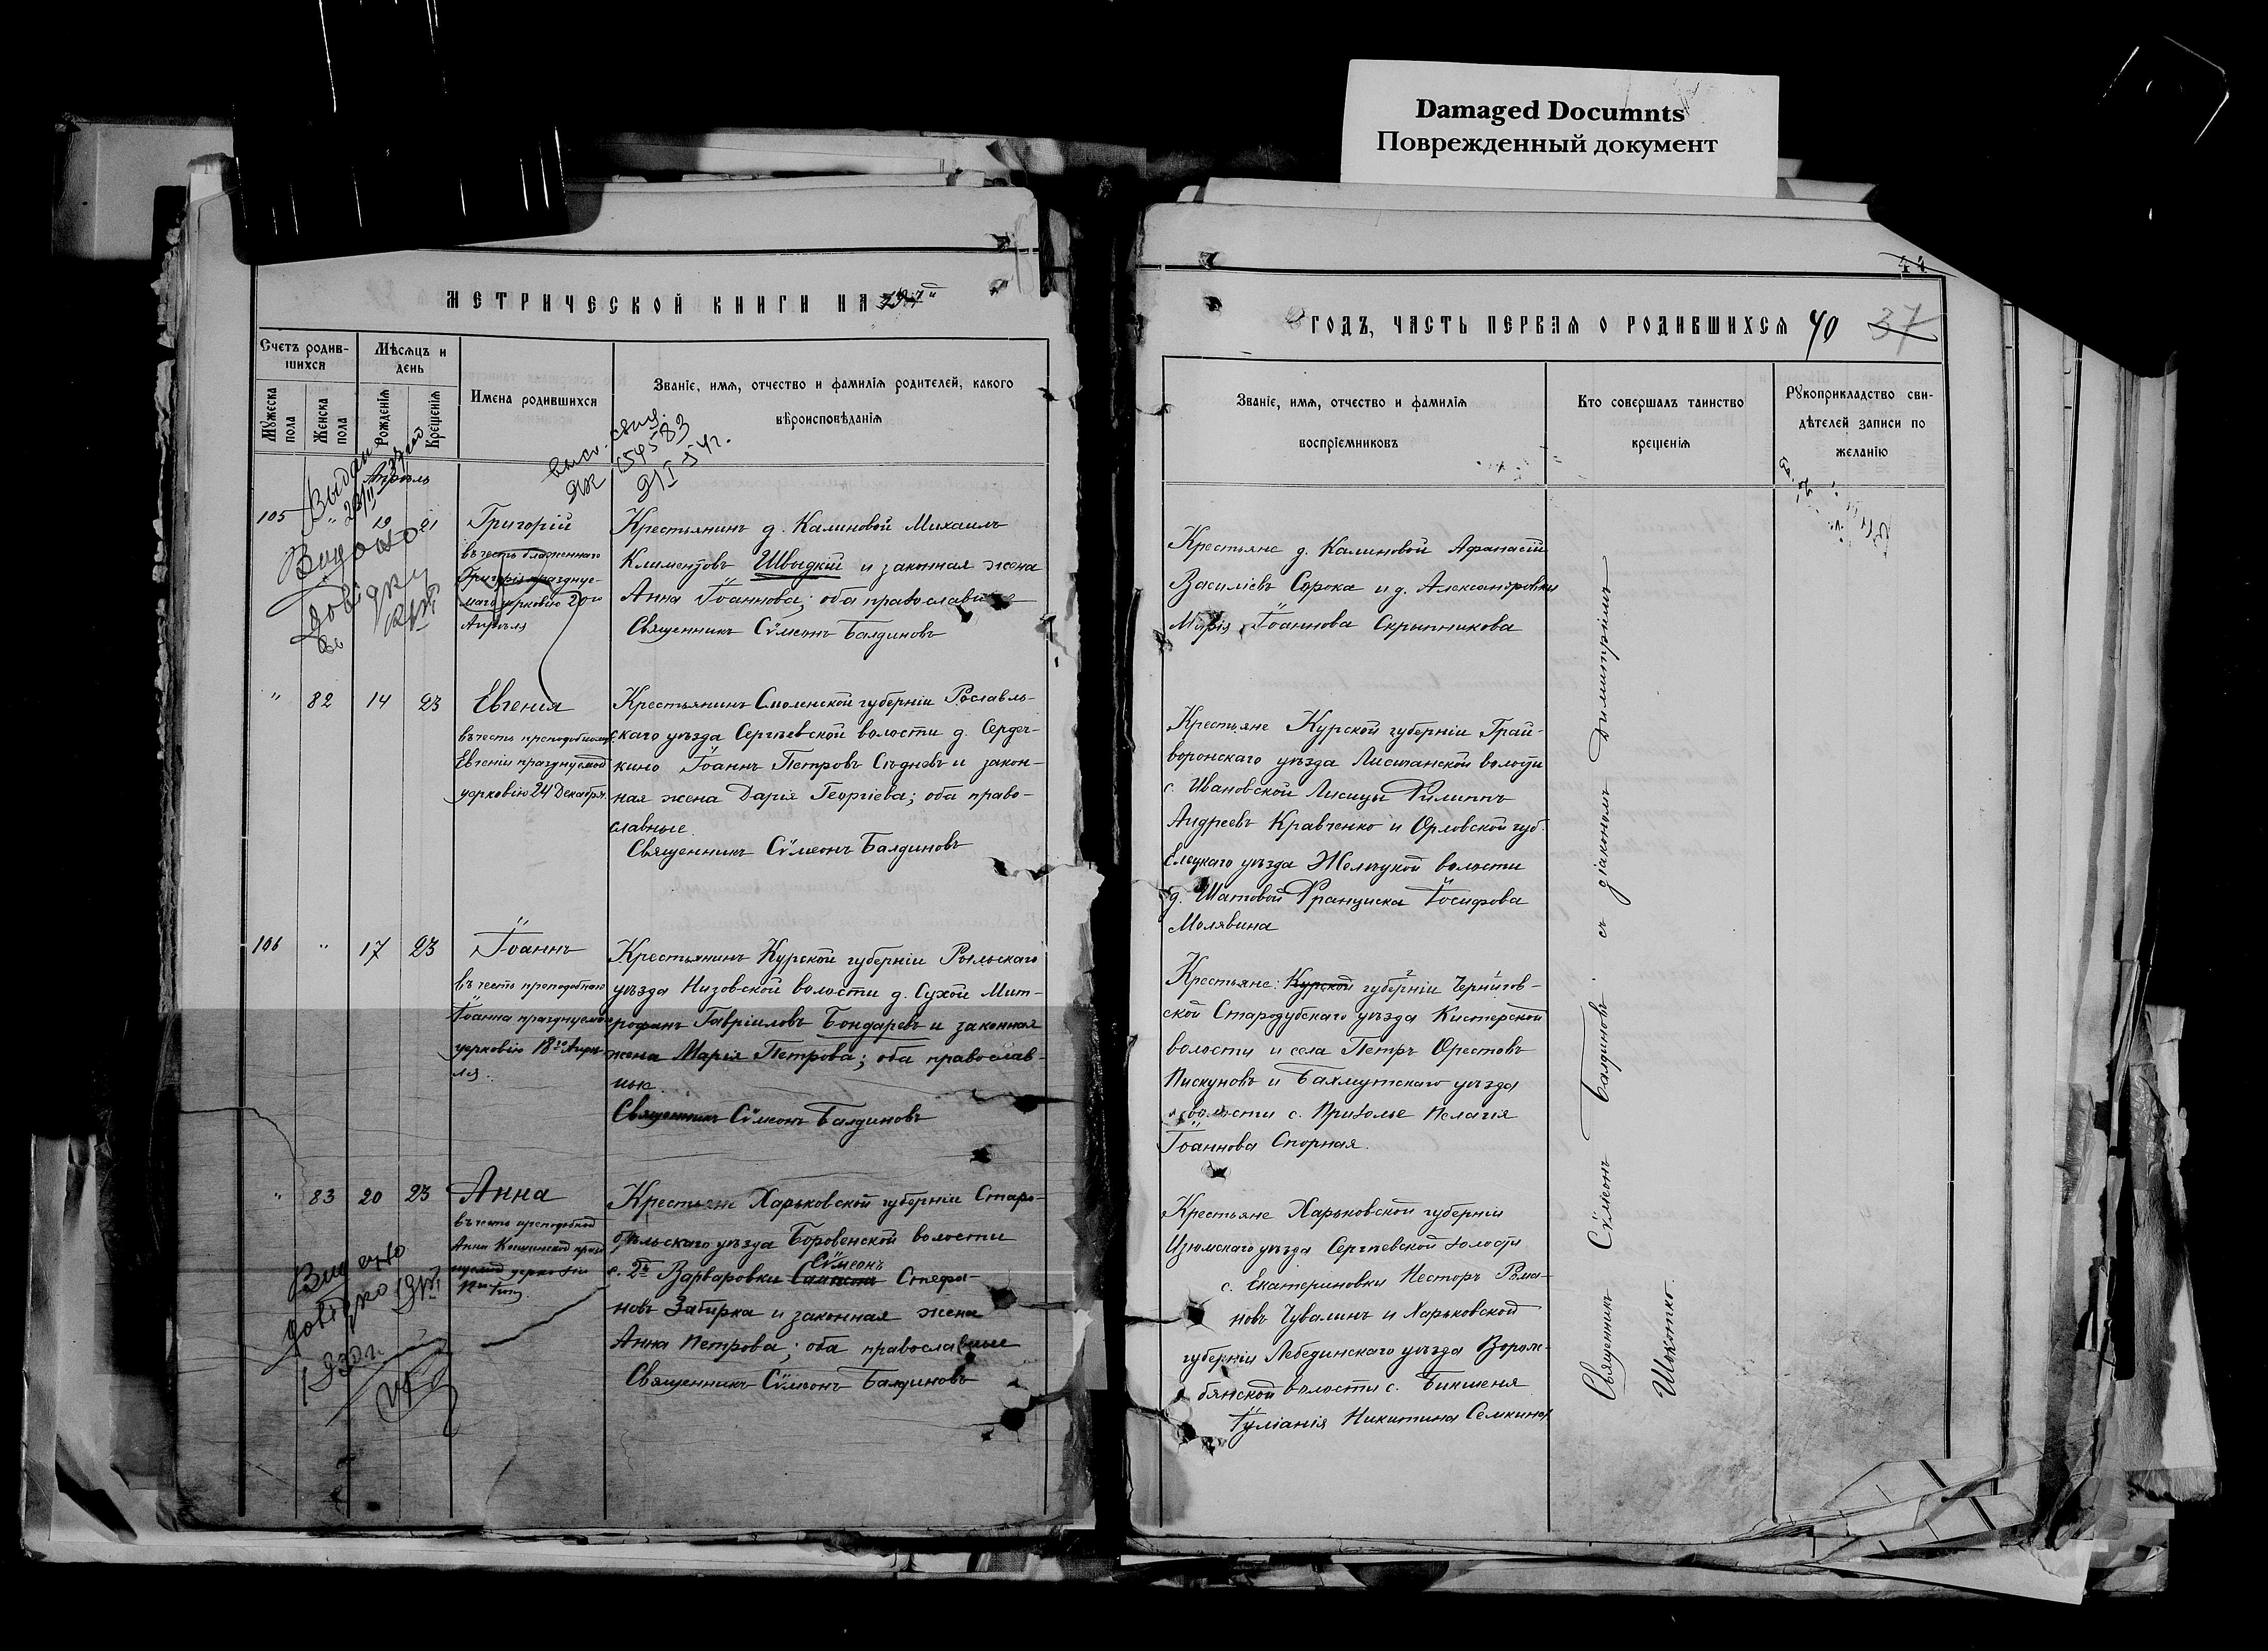 Damaged Documnts
Поврежденный документ
МЕТРИЧЕСКОЙ КНИГИ НА
Счетъ родив-
шихся
Мѣсяцъ и
день
Мужеска
пола
Женска
пола
Рожденія
Крещенія
Имена родившихся
Званіе, имя, отчество и фамилія родителей, какого
вѣроисповѣданія
Апрѣль
105 " 19 21
Григорій
въ честь блаженнаго
Григорія празднуе-
маго церковію 20го
Апрѣля
Крестьянинъ д. Калиновой Михаилъ
Климентовъ Швыдкій и законная жена
Анна Іоаннова; оба православные
Священникъ Сѵмеонъ Балдиновъ
" 82 14 23
Евгенія
въ честь преподобному.
Евгеніи празднуемой
церковію 24 Декабря.
Крестьянинъ Смоленской губерніи Рославль-
скаго уѣзда Сергѣевской волости д. Сердеч-
кино Іоаннъ Петровъ Сѣдневъ и закон-
ная жена Дарія Георгіева; оба право-
славные.
Священникъ Сѵмеонъ Балдиновъ
106 " 17 23
Іоаннъ
въ честь преподобнаго
Іоанна празднуемаго
церковію 18го Апрѣ-
ля.
Крестьянинъ Курской губерніи Рыльскаго
уѣзда Низовской волости д. Сухой Мит-
рофанъ Гавріиловъ Бондаревъ и законная
жена Марія Петрова; оба православ-
ные.
Священникъ Сѵмеонъ Балдиновъ
" 83 20 23
Анна
въ честь преподобной
Анны Кашинской празд
нуемой церковію
12го Іюня.
Крестьяне Харьковской губерніи Старо-
бѣльскаго уѣзда Боровенской волости
Сѵмеонъ
с. 2й Варваровки Стефа-
новъ Забирка и законная жена
Анна Петрова; оба православные
Священникъ Сѵмеонъ Балдиновъ
Выдана
Видано
довідку
Видано
довідку
1930 г.
44
ГОДЪ, ЧАСТЬ ПЕРВАЯ О РОДИВШИХСЯ 40 37
Званіе, имя, отчество и фамилія
воспріемниковъ
Кто совершалъ таинство
крещенія
Рукоприкладство сви-
дѣтелей записи по
желанію
Крестьяне д. Калиновой Афанасій
Василіевъ Сорока и д. Александровки
Марія Іоаннова Скрынникова
Крестьяне Курской губерніи Грай-
воронскаго уѣзда Лисичанской волости
с. Ивановской Лисицы Филиппъ
Андреевъ Кравченко и Орловской губ.
Елецкаго уѣзда волости
д. Шатовой Франциска Іосифова
Молявина
Крестьяне: Курской губерніи Чернигов-
ской Стародубскаго уѣзда Кистерской
волости и села Петръ Орестовъ
Пискуновъ и Бахмутскаго уѣзда
и волости с. Приволье Пелагія
Іоаннова Спорная.
Крестьяне Харьковской губерніи
Изюмскаго уѣзда Сергѣевской волости
с. Екатериновки Несторъ Рома-
новъ Чувалинъ и Харьковской
губерніи Лебединскаго уѣзда Ворож-
бянской волости с. Бишкеня
Іуліанія Никитина Семкина
Священникъ Сѵмеонъ Балдиновъ съ діакономъ Димитріемъ
Шокотко.